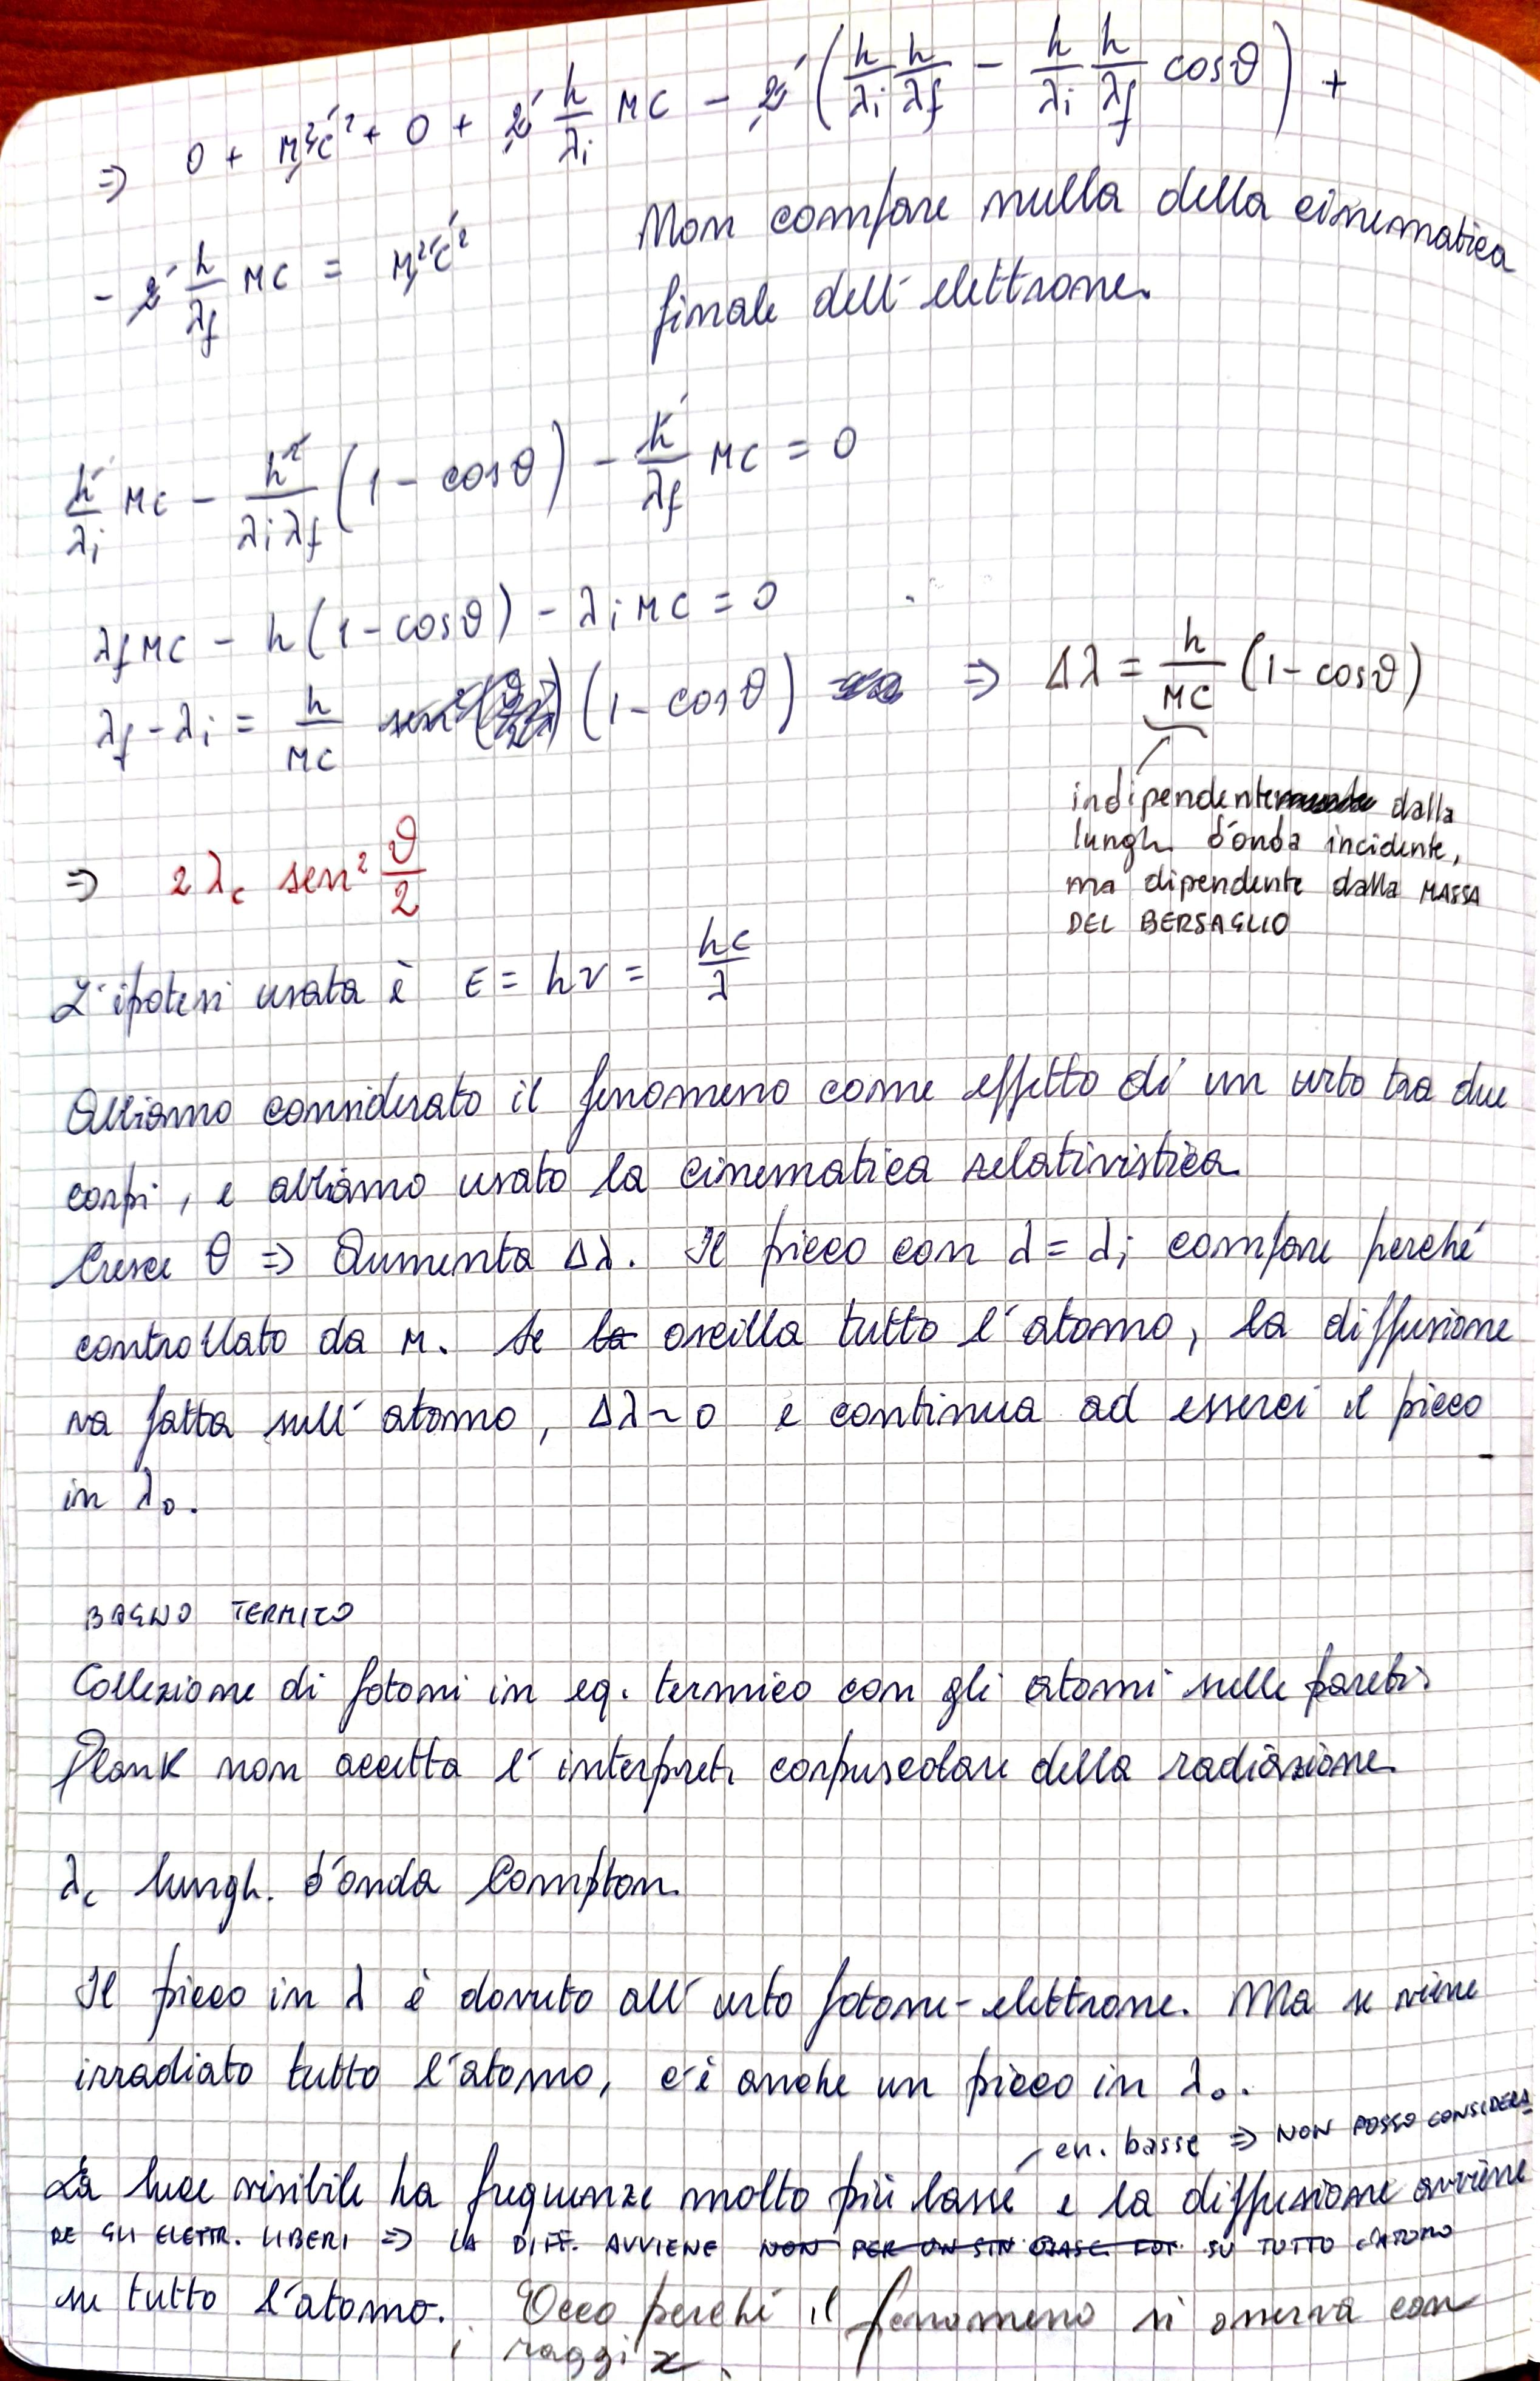 ⇒ 0 + M²c² + 0 + 2 h/λi MC − 2 (h/λi h/λf − h/λi h/λf cosϑ) +
− 2 h/λf MC = M²c²
Non compare nulla della cinematica
finale dell'elettrone.
h/λi MC − h²/λiλf (1 − cosϑ) − h/λf MC = 0
λf MC − h (1 − cosϑ) − λi MC = 0
λf − λi = h/MC (1 − cosϑ) ⇒ Δλ = h/MC (1 − cosϑ)
indipendente dalla
lungh. d'onda incidente,
ma dipendente dalla MASSA
DEL BERSAGLIO
⇒ 2 λc sen² ϑ/2
L'ipotesi usata è E = hν = hc/λ
Abbiamo considerato il fenomeno come effetto di un urto tra due
corpi, e abbiamo usato la cinematica relativistica.
Cresce θ ⇒ Aumenta Δλ. Il picco con λ = λi compare perché
controllato da M. Se la oscilla tutto l'atomo, la diffusione
va fatta sull'atomo, Δλ ~ 0 e continua ad esserci il picco
in λ0.
BAGNO TERMICO
Collezione di fotoni in eq. termico con gli atomi sulle pareti.
Plank non accetta l'interpret. corpuscolare della radiazione.
λc lungh. d'onda Compton.
Il picco in λ è dovuto all'urto fotone-elettrone. Ma se viene
irradiato tutto l'atomo, c'è anche un picco in λ0.
en. basse ⇒ NON POSSO CONSIDERA
La luce visibile ha frequenze molto più basse e la diffusione avviene
RE GLI ELETTR. LIBERI ⇒ LA DIFF. AVVIENE NON PER UN SU TUTTO L'ATOMO
su tutto l'atomo. Ecco perché il fenomeno si osserva con
i raggi x.